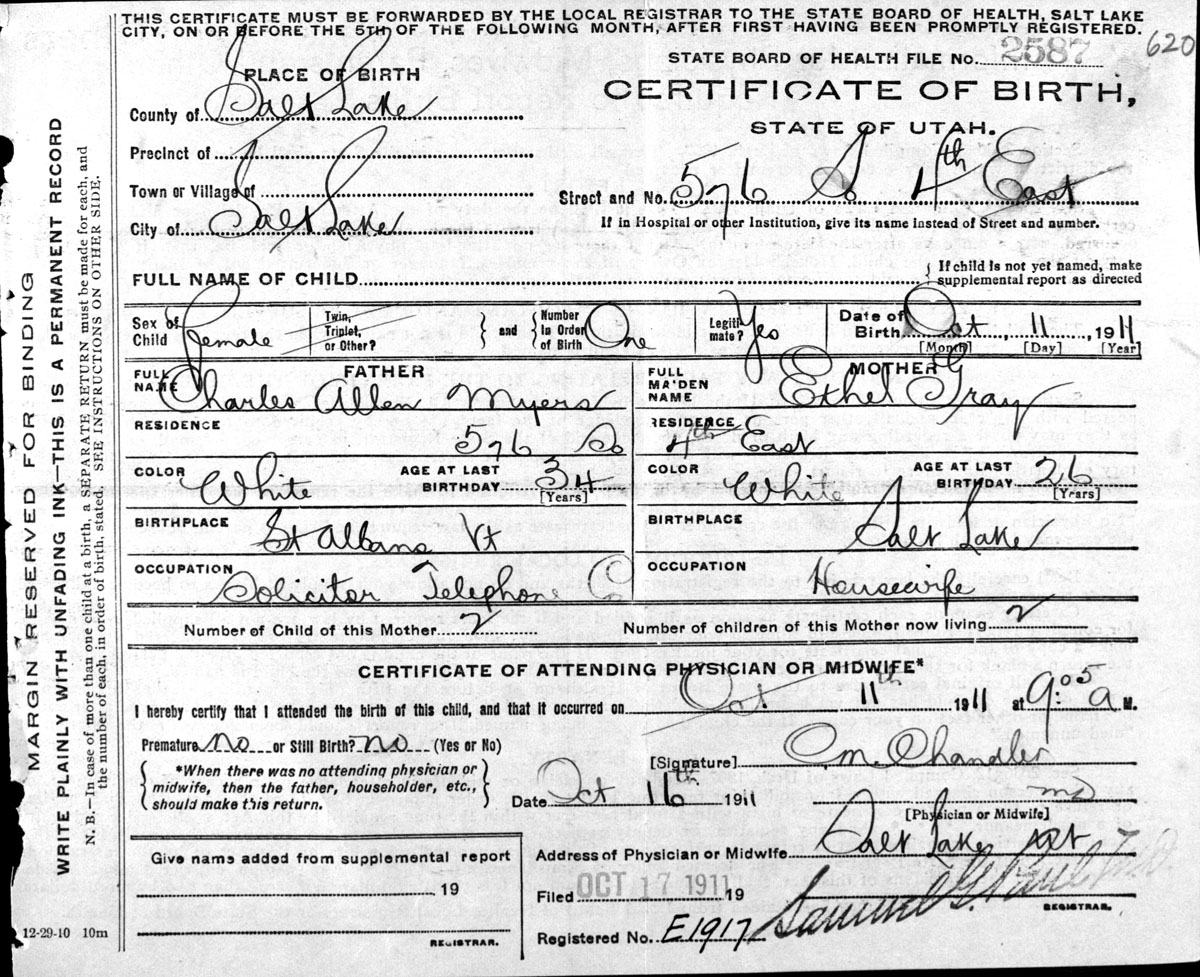 THIS CERTIFICATE MUST BE FORWARDED BY THE LOCAL REGISTRAR TO THE STATE BOARD OF HEALTH, SALT LAKE
CITY, ON OR BEFORE THE 5TH OF THE FOLLOWING MONTH, AFTER FIRST HAVING BEEN PROMPTLY REGISTERED.
620
STATE BOARD OF HEALTH FILE No. 2587
CERTIFICATE OF BIRTH,
STATE OF UTAH.
PLACE OF BIRTH
County of Salt Lake
Precinct of
Town or Village of
City of Salt Lake
Street and No. 576 S 4th East
If in Hospital or other Institution, give its name instead of Street and number.
FULL NAME OF CHILD
If child is not yet named, make
supplemental report as directed
Sex of Child Female
Twin, Triplet, or Other?
and
Number in Order of Birth One
Legitimate? Yes
Date of Birth Oct 11, 1911
[Month] [Day] [Year]
FATHER
FULL NAME Charles Allen Myers
MOTHER
FULL MAIDEN NAME Ethel Gray
RESIDENCE 576 So
RESIDENCE 4th East
COLOR White
AGE AT LAST BIRTHDAY 34
[Years]
COLOR White
AGE AT LAST BIRTHDAY 26
[Years]
BIRTHPLACE St Albans Vt
BIRTHPLACE Salt Lake
OCCUPATION Solicitor Telephone Co
OCCUPATION Housewife
Number of Child of this Mother 2
Number of children of this Mother now living 2
CERTIFICATE OF ATTENDING PHYSICIAN OR MIDWIFE*
I hereby certify that I attended the birth of this child, and that it occurred on Oct. 11th 1911 at 9:00 a M.
Premature no or Still Birth? no (Yes or No)
*When there was no attending physician or
midwife, then the father, householder, etc.,
should make this return.
[Signature] C M Chandler
Date Oct 16th 1911
MD
[Physician or Midwife]
Address of Physician or Midwife Salt Lake
Give name added from supplemental report
19
REGISTRAR.
Filed OCT 17 1911 19
Samuel G. Paul
REGISTRAR.
Registered No. E1917
12-29-10 10m
MARGIN RESERVED FOR BINDING
WRITE PLAINLY WITH UNFADING INK—THIS IS A PERMANENT RECORD
N. B.—In case of more than one child at a birth, a SEPARATE RETURN must be made for each, and
the number of each, in order of birth, stated. SEE INSTRUCTIONS ON OTHER SIDE.